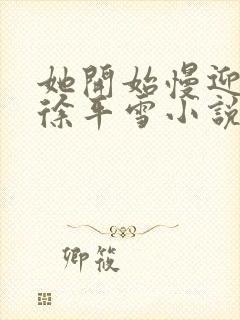 她開始慢迎
徐平雪小說
卿筱